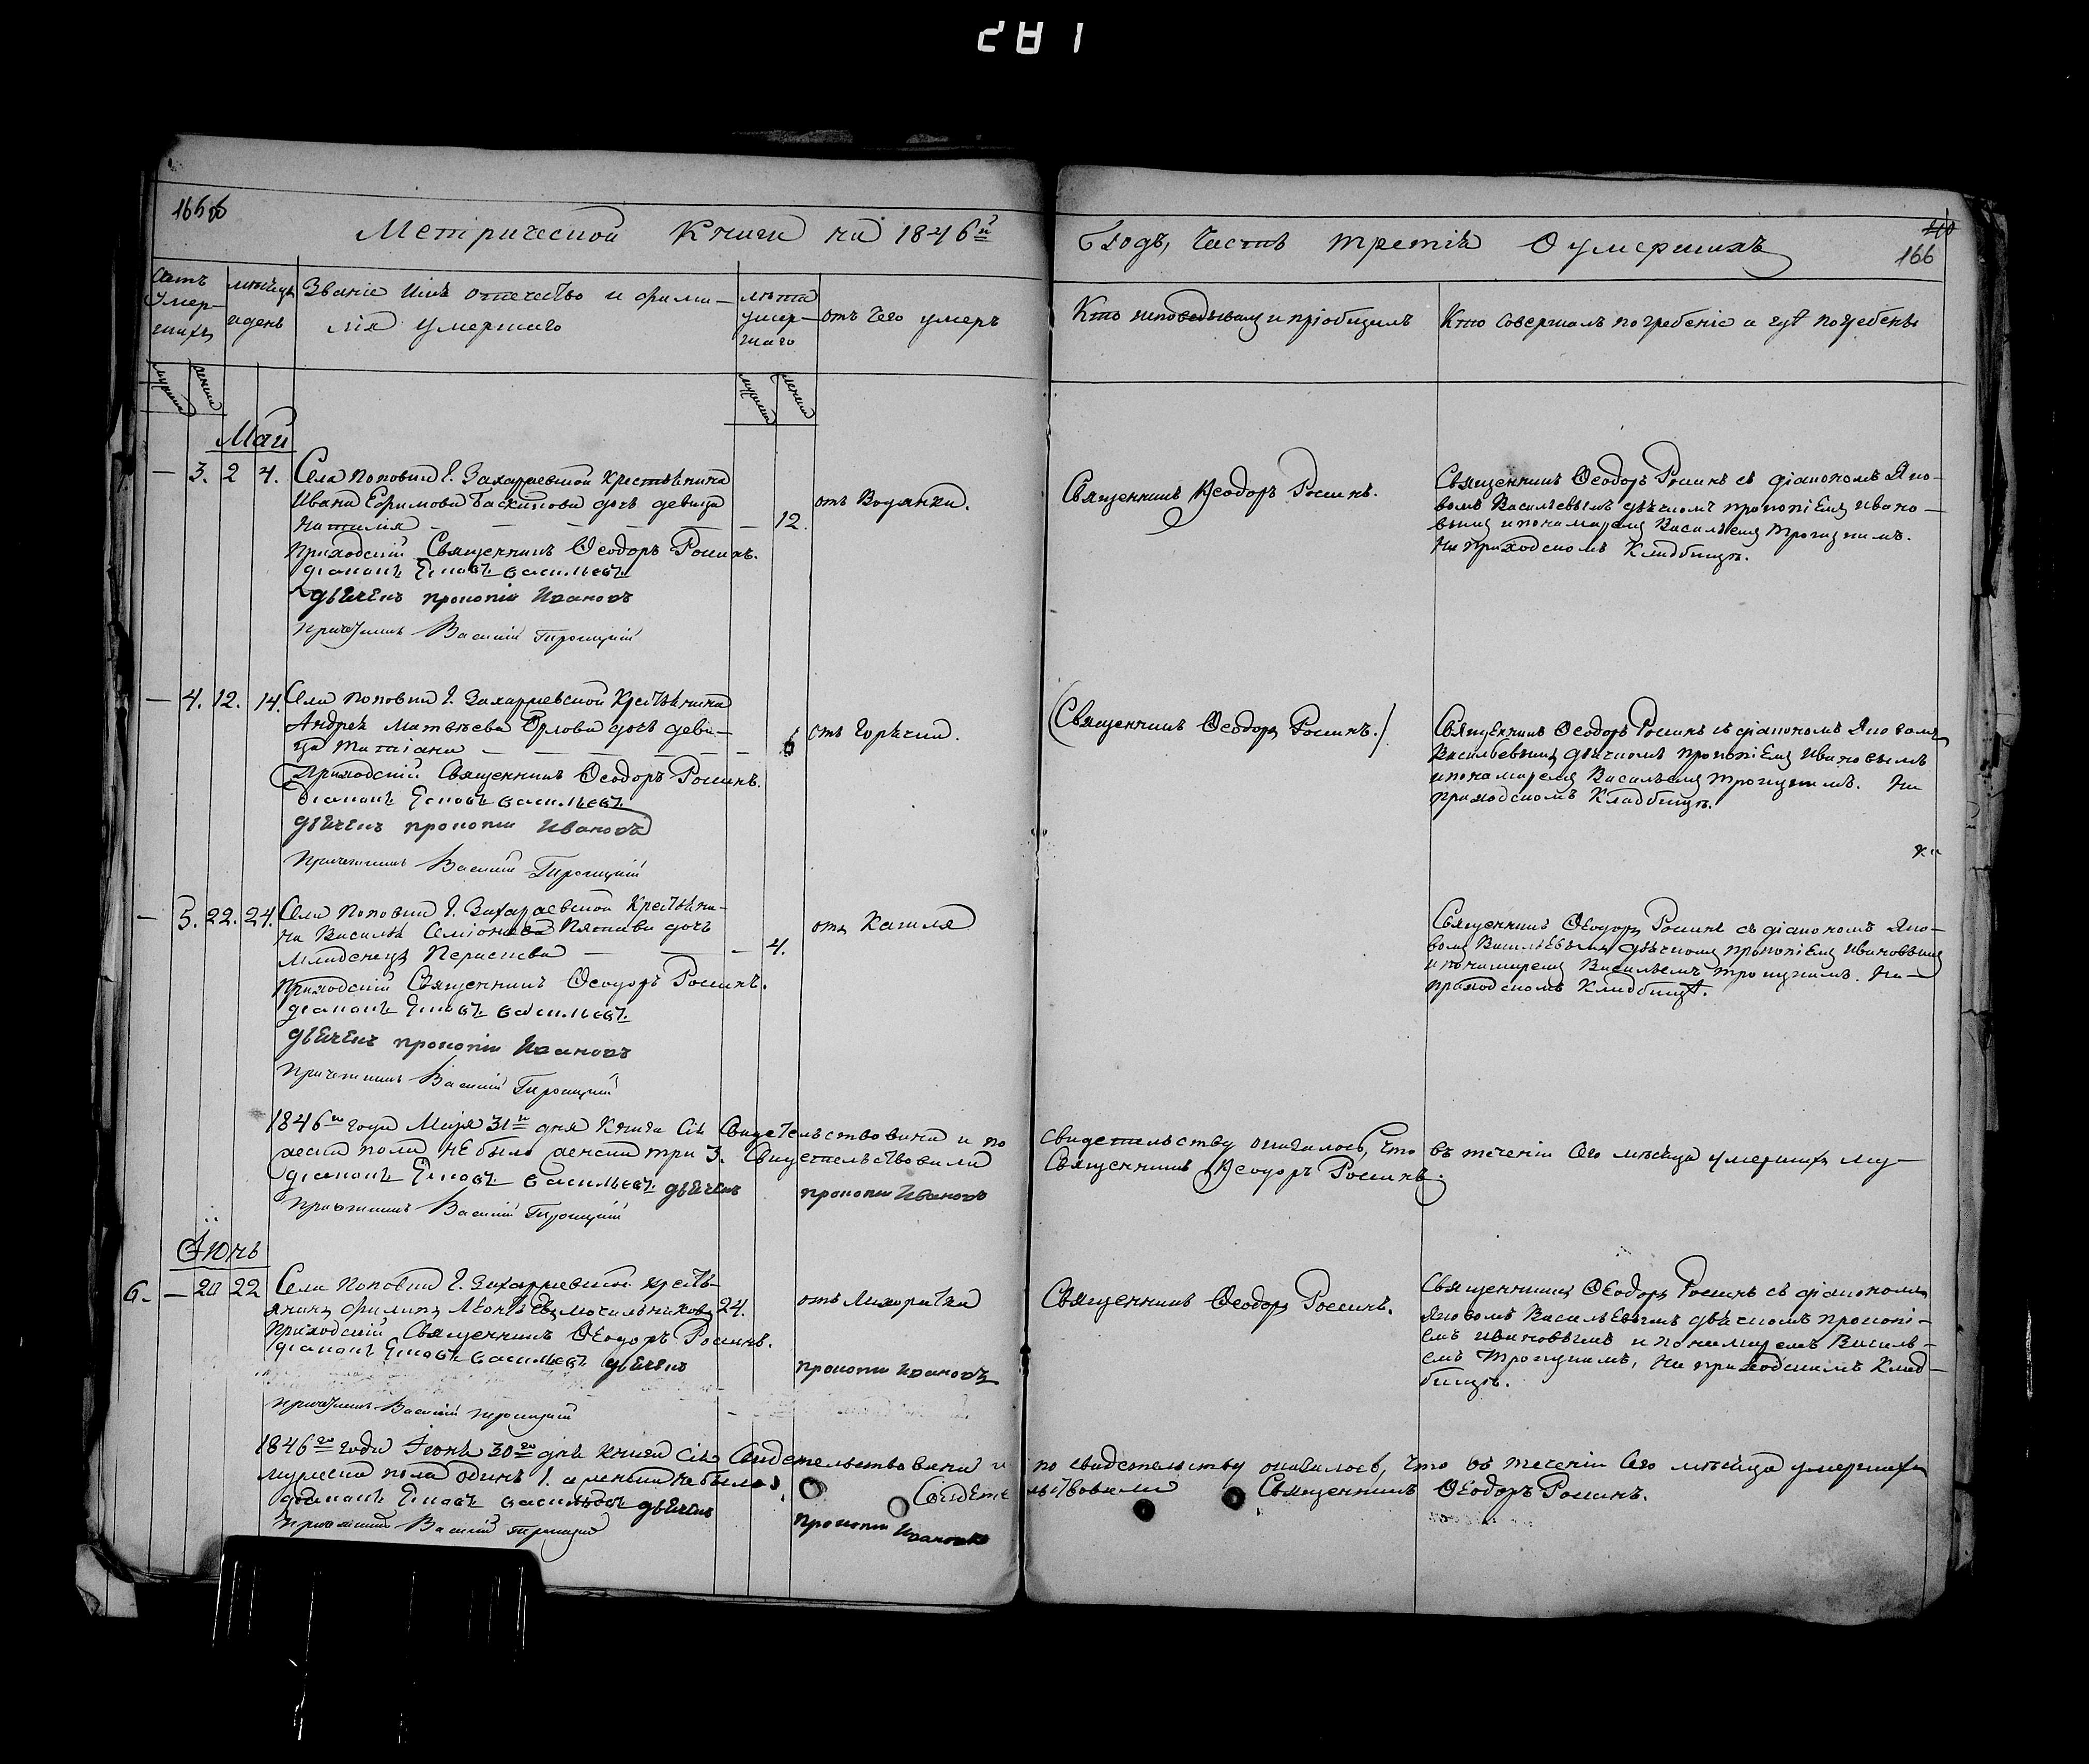 281
166об
Метрической Книги на 1846й
Годъ, Часть третія О умершихъ
210
166
Счетъ умер-шихъ
мѣсяцъ и день
Званіе имя отечество и фами-
лія умершаго
лѣта умер-шаго
отъ чего умеръ
Кто исповѣдывалъ и пріобщилъ
Кто совершалъ погребеніе и гдѣ погребены
мужска
женска
мужска
женска
Май
— 3. 2 4. Села Поповки Захарьевской крестьянина
Ивана Ефимова дочь девица
Наталія — — — — — 12.
отъ Водянки.
Приходскій Священникъ Ѳеодоръ Росинъ.
діаконъ Яковъ Васильевъ
дьячекъ прокопій Ивановъ
Причетникъ Василій Троицкій
Священникъ Ѳеодоръ Росинъ.
Священникъ Ѳеодоръ Росинъ съ діакономъ Яко-
вомъ Васильевымъ дьячкомъ прокопіемъ Ивано-
вымъ и пономаремъ Васильемъ Троицкимъ.
На приходскомъ Кладбищѣ.
— 4. 12. 14. Села Поповки Захарьевской Крестьянина
Андрея Матвѣева Орлова дочь деви-
ца Татіана — — — — 6
отъ Горячки.
Приходскій Священникъ Ѳеодоръ Росинъ.
діаконъ Яковъ Васильевъ
дьячекъ прокопій Ивановъ
Причетникъ Василій Троицкій
Священникъ Ѳеодоръ Росинъ.
Священникъ Ѳеодоръ Росинъ съ діакономъ Яковомъ
Васильевымъ дьячкомъ прокопіемъ Ивановымъ
и пономаремъ Васильемъ Троицкимъ. На
приходскомъ Кладбищѣ.
— 5. 22. 24. Села Поповки Захарьевской Крестьяни-
на Василья Семіонова дочь
младенецъ — — 4.
отъ Кашля
Приходскій Священникъ Ѳеодоръ Росинъ.
діаконъ Яковъ Васильевъ
дьячекъ прокопій Ивановъ
Причетникъ Василій Троицкій
Священникъ Ѳеодоръ Росинъ съ діакономъ Яко-
вомъ Васильевымъ дьячкомъ прокопіемъ Ивановымъ
и пономаремъ Васильемъ Троицкимъ. На
приходскомъ Кладбищѣ.
1846го года Маія 31го дня Книга сія Свидетельствована и по свидетельству оказалось, что въ теченіи сего мѣсяца умершихъ му-
жеска пола не было женска три 3. Свидетельствовали Священникъ Ѳеодоръ Росинъ.
діаконъ Яковъ Васильевъ дьячекъ прокопій Ивановъ
Причетникъ Василій Троицкій
Іюнь
6. — 20 22 Села Поповки Захарьевской кресть-
янинъ Филипъ 24.
отъ Лихорадки
Приходскій Священникъ Ѳеодоръ Росинъ.
діаконъ Яковъ Васильевъ дьячекъ прокопій Ивановъ
причетникъ Василій Троицкій
Священникъ Ѳеодоръ Росинъ.
Священникъ Ѳеодоръ Росинъ съ діакономъ
Яковомъ Васильевымъ дьячкомъ прокопі-
емъ Ивановымъ и пономаремъ Василь-
емъ Троицкимъ, На приходскомъ Клад-
бищѣ.
1846го года Іюня 30го дня книга сія Свидетельствована и по свидетельству оказалось, что въ теченіи сего мѣсяца умершихъ
мужеска пола одинъ 1. а женска не было Свидетельствовали Священникъ Ѳеодоръ Росинъ.
діаконъ Яковъ Васильевъ дьячекъ прокопій Ивановъ
Причетникъ Василій Троицкій